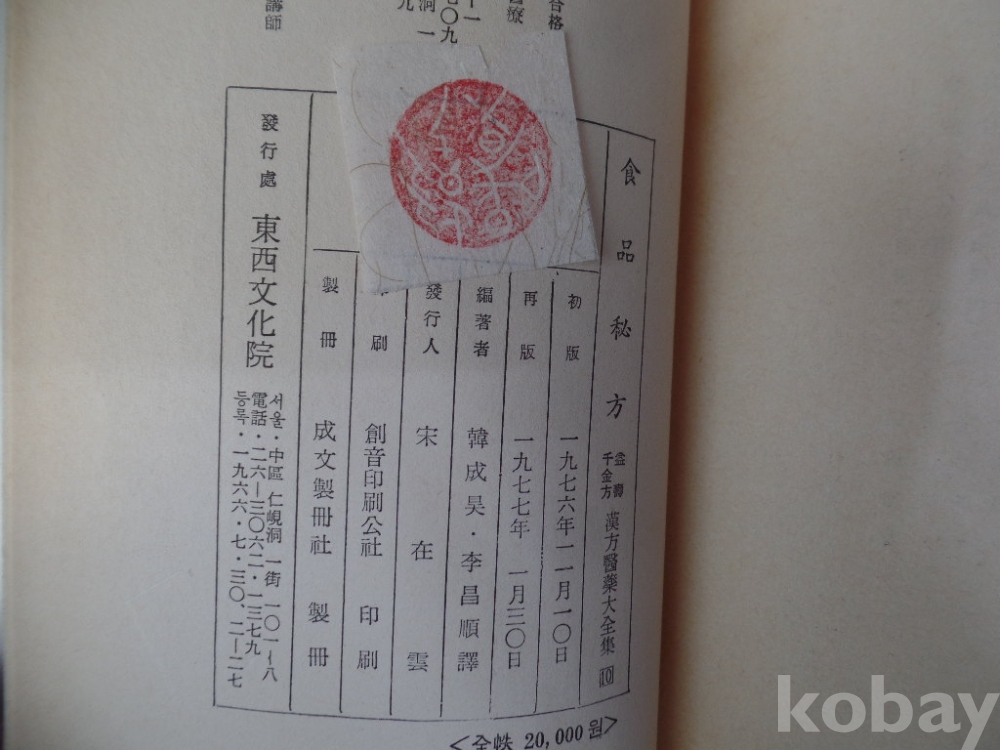 食品秘方 益壽千金方 漢方醫藥大全集 10
初版 一九七六年一一月一〇日
再版 一九七七年 一月三〇日
編著者 韓成昊・李昌順譯
發行人 宋在雲
刷 創音印刷公社 印刷
製冊 成文製冊社 製冊
發行處 東西文化院
서울・中區 仁峴洞 一街 一〇一ー八
電話・二六ー三〇六二・一三七九
등록・一九六六・七・三〇、二ー二七
<全帙 20,000원>
合格
醫療
七〇九
洞 一
九
講師
kobay